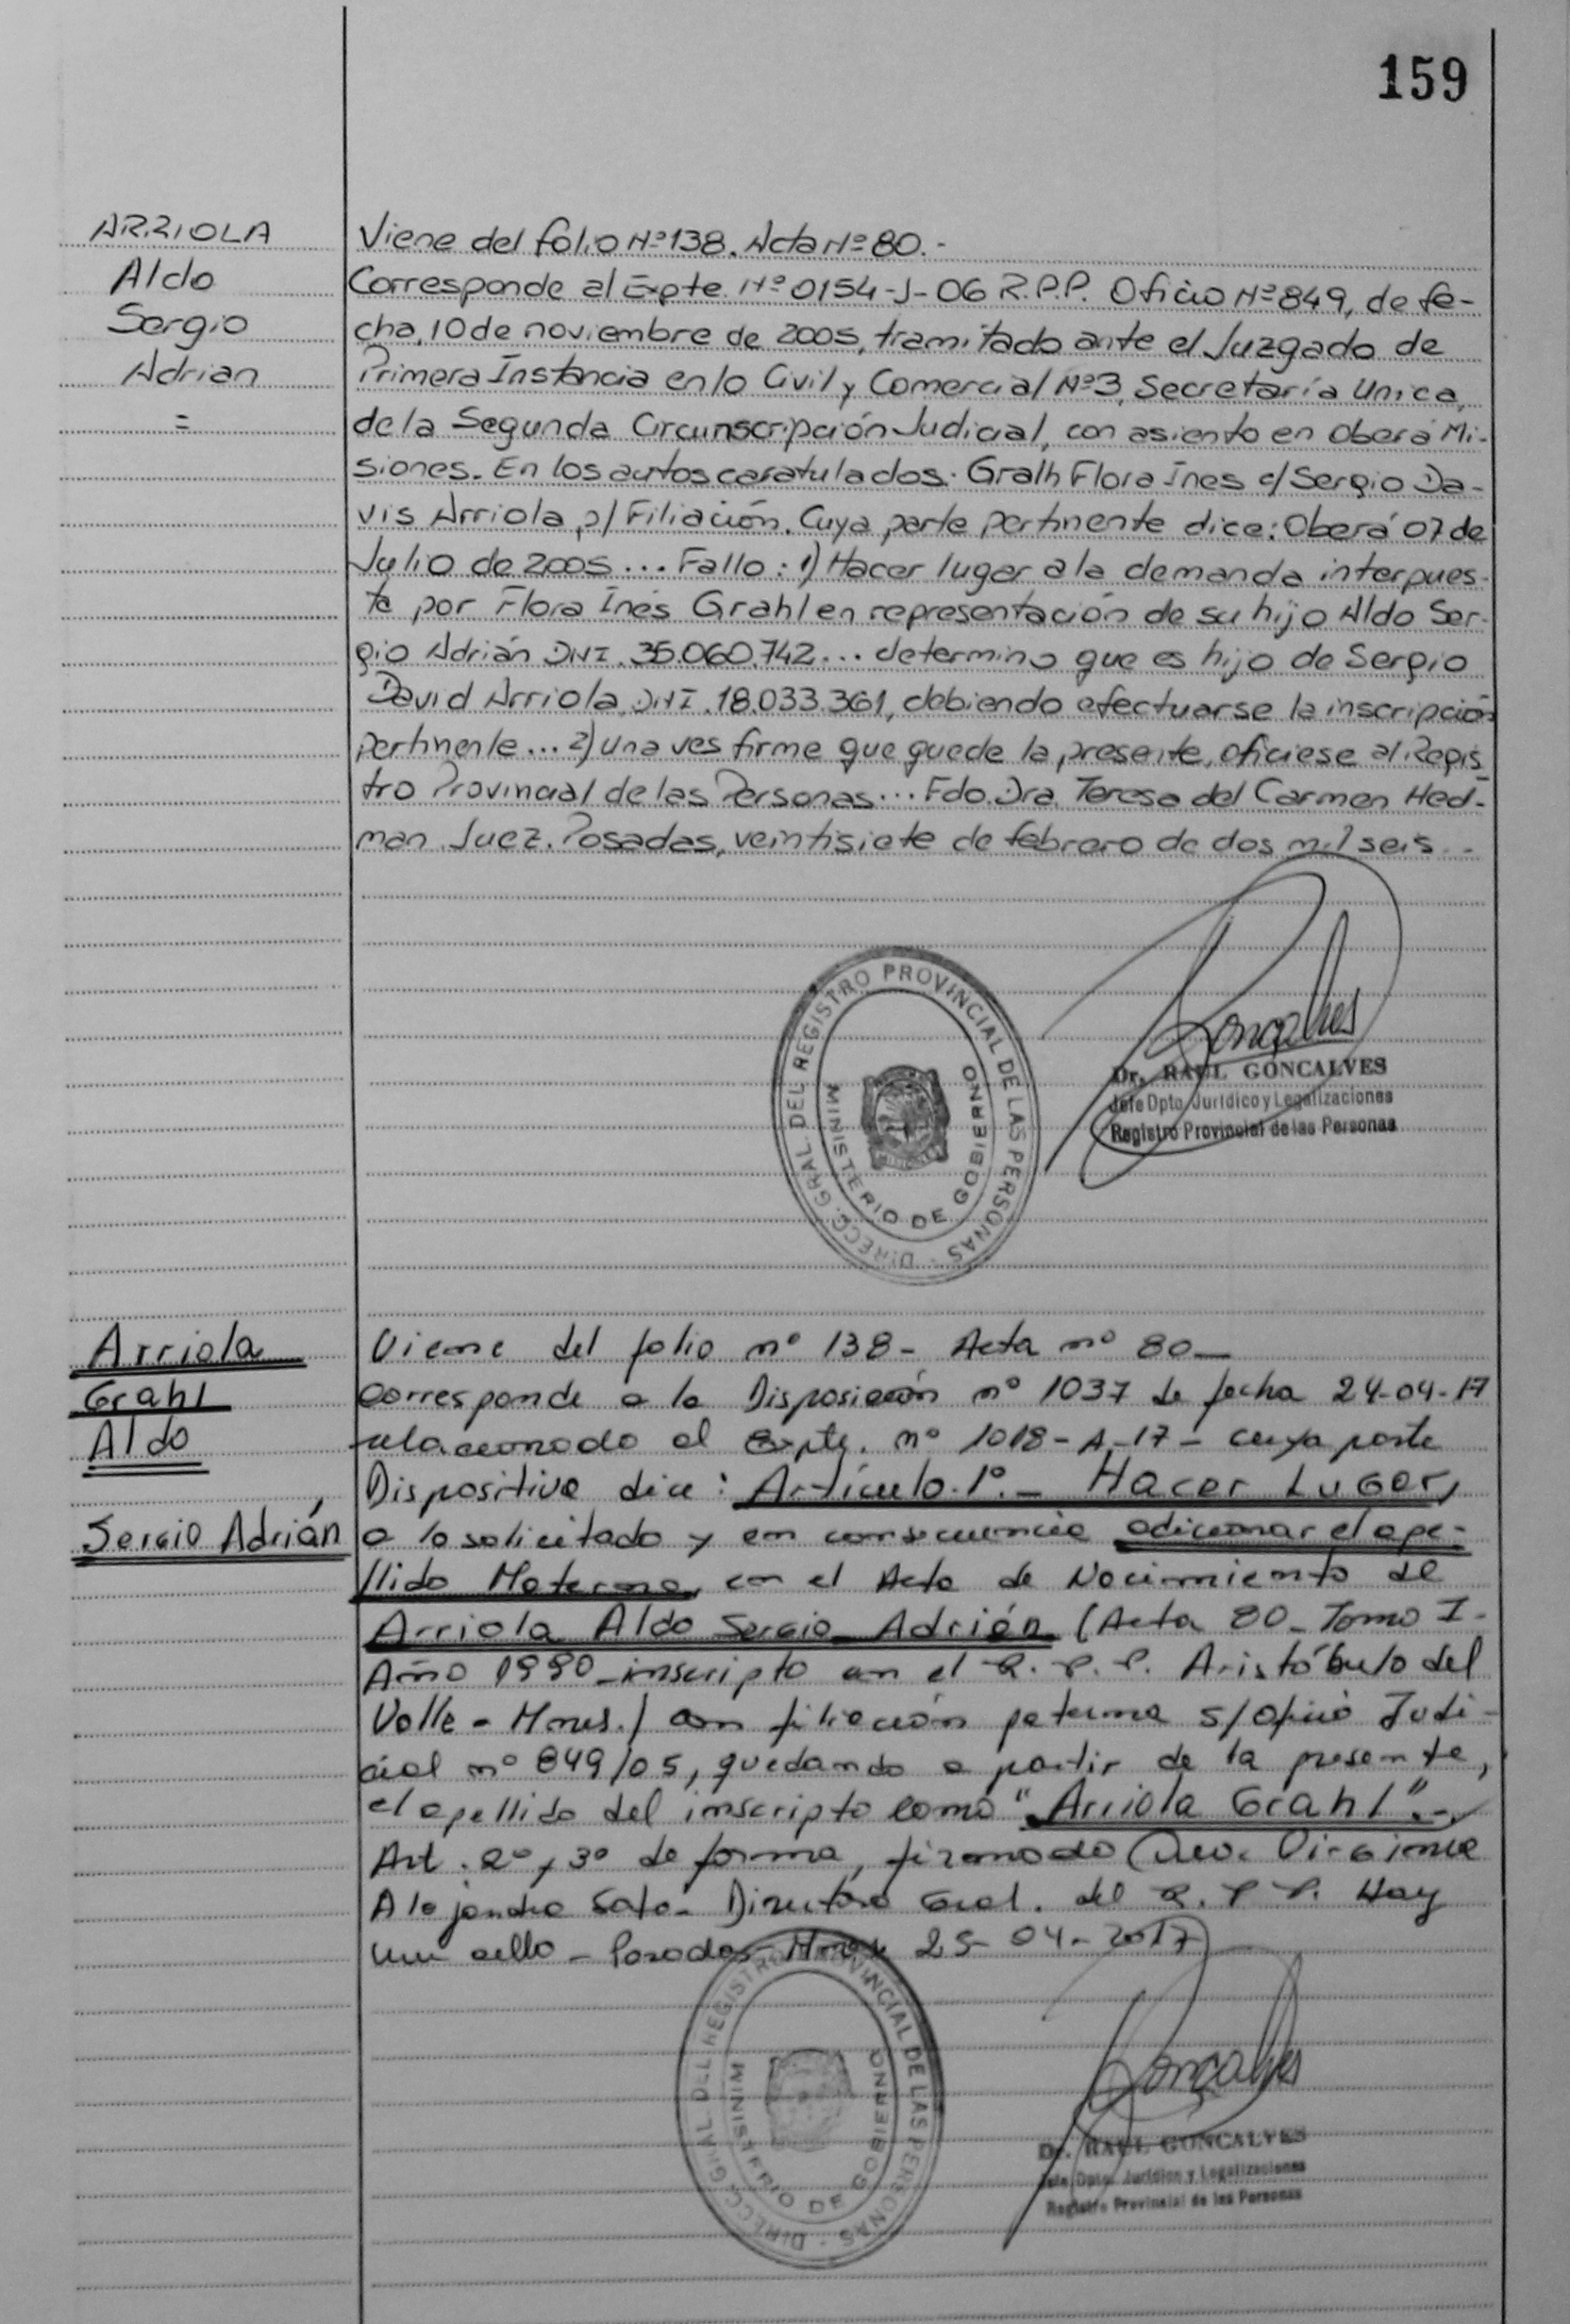 159
ARRIOLA
Aldo
Sergio
Adrian
=
Viene del folio Nº 138. Acta Nº 80.-
Corresponde al Expte. Nº 0154-J-06 R.P.P. Oficio Nº 849, de fe-
cha, 10 de noviembre de 2005, tramitado ante el Juzgado de
Primera Instancia en lo Civil y Comercial Nº 3, Secretaría Unica,
de la Segunda Circunscripción Judicial, con asiento en Oberá Mi-
siones. En los autos caratulados. Gralh Flora Ines c/ Sergio Da-
vis Arriola s/ Filiación. Cuya parte pertinente dice: Oberá 07 de
Julio de 2005 ... Fallo: 1) Hacer lugar a la demanda interpues-
ta por Flora Inés Grahl en representación de su hijo Aldo Ser-
gio Adrián DNI. 35.060.742... determino que es hijo de Sergio
David Arriola DNI. 18.033.361, debiendo efectuarse la inscripción
pertinente... 2) Una ves firme que quede la presente, oficiese al Regis
tro Provincial de las Personas... Fdo. Dra. Teresa del Carmen Hed-
man Juez. Posadas, veintisiete de febrero de dos mil seis.-
DIRECC. GRAL. DEL REGISTRO PROVINCIAL DE LAS PERSONAS -
MINISTERIO DE GOBIERNO
Goncalves
Dr. RAUL GONCALVES
Jefe Dpto. Jurídico y Legalizaciones
Registro Provincial de las Personas
Arriola
Grahl
Aldo
Sergio Adrián
Viene del folio nº 138- Acta nº 80-
Corresponde a la Disposición nº 1037 de fecha 24-04-17
relacionado al Expte. nº 1018-A-17- cuya parte
Dispositiva dice: Artículo.1º.- Hacer Lugar,
a lo solicitado y en consecuencia adicionar el ape-
llido Materno, en el Acta de Nacimiento de
Arriola Aldo Sergio Adrián (Acta 80- Tomo I-
Año 1990-inscripto en el R.P.P. Aristóbulo del
Valle-Mnes.) con filiación paterna s/Oficio Judi-
cial nº 849/05, quedando a partir de la presente,
el apellido del inscripto como "Arriola Grahl".-
Art. 2º y 3º de forma, firmado
Alejandra Directora Gral. del R.P.P. Hay
un sello - Posadas- Mnes 25-04-2017
DIRECC. GRAL. DEL REGISTRO PROVINCIAL DE LAS PERSONAS -
MINISTERIO DE GOBIERNO
Goncalves
Dr. RAUL GONCALVES
Jefe Dpto. Jurídico y Legalizaciones
Registro Provincial de las Personas